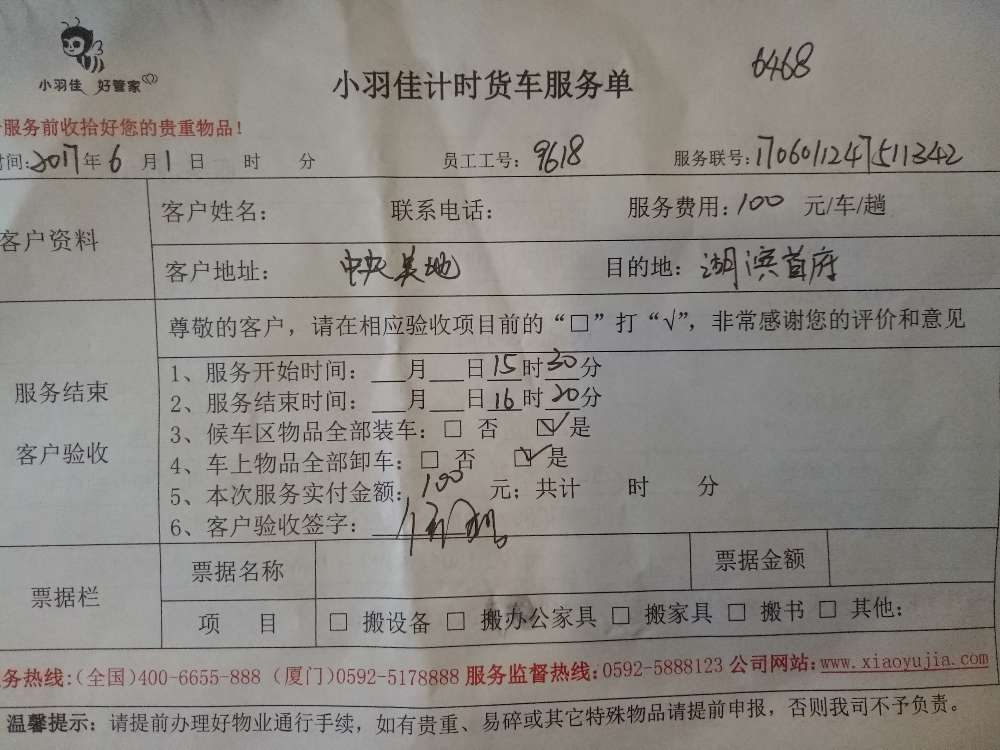 小羽佳 好管家
小羽佳计时货车服务单
6468
服务前收拾好您的贵重物品!
时间:2017年6月1日 时 分 员工工号:9618 服务联号:1706011247511342
客户资料
客户姓名: 联系电话: 服务费用:100 元/车/趟
客户地址: 中央美地 目的地:湖滨首府
服务结束
客户验收
尊敬的客户，请在相应验收项目前的“□”打“√”，非常感谢您的评价和意见
1、服务开始时间:___月___日15时30分
2、服务结束时间:___月___日16时20分
3、候车区物品全部装车:□ 否 ☑ 是
4、车上物品全部卸车:□ 否 ☑ 是
5、本次服务实付金额:100 元; 共计 时 分
6、客户验收签字:
票据栏
票据名称 票据金额
项 目 □ 搬设备 □ 搬办公家具 □ 搬家具 □ 搬书 □ 其他:
务热线:(全国)400-6655-888 (厦门)0592-5178888 服务监督热线:0592-5888123 公司网站:www.xiaoyujia.com
温馨提示: 请提前办理好物业通行手续，如有贵重、易碎或其它特殊物品请提前申报，否则我司不予负责。